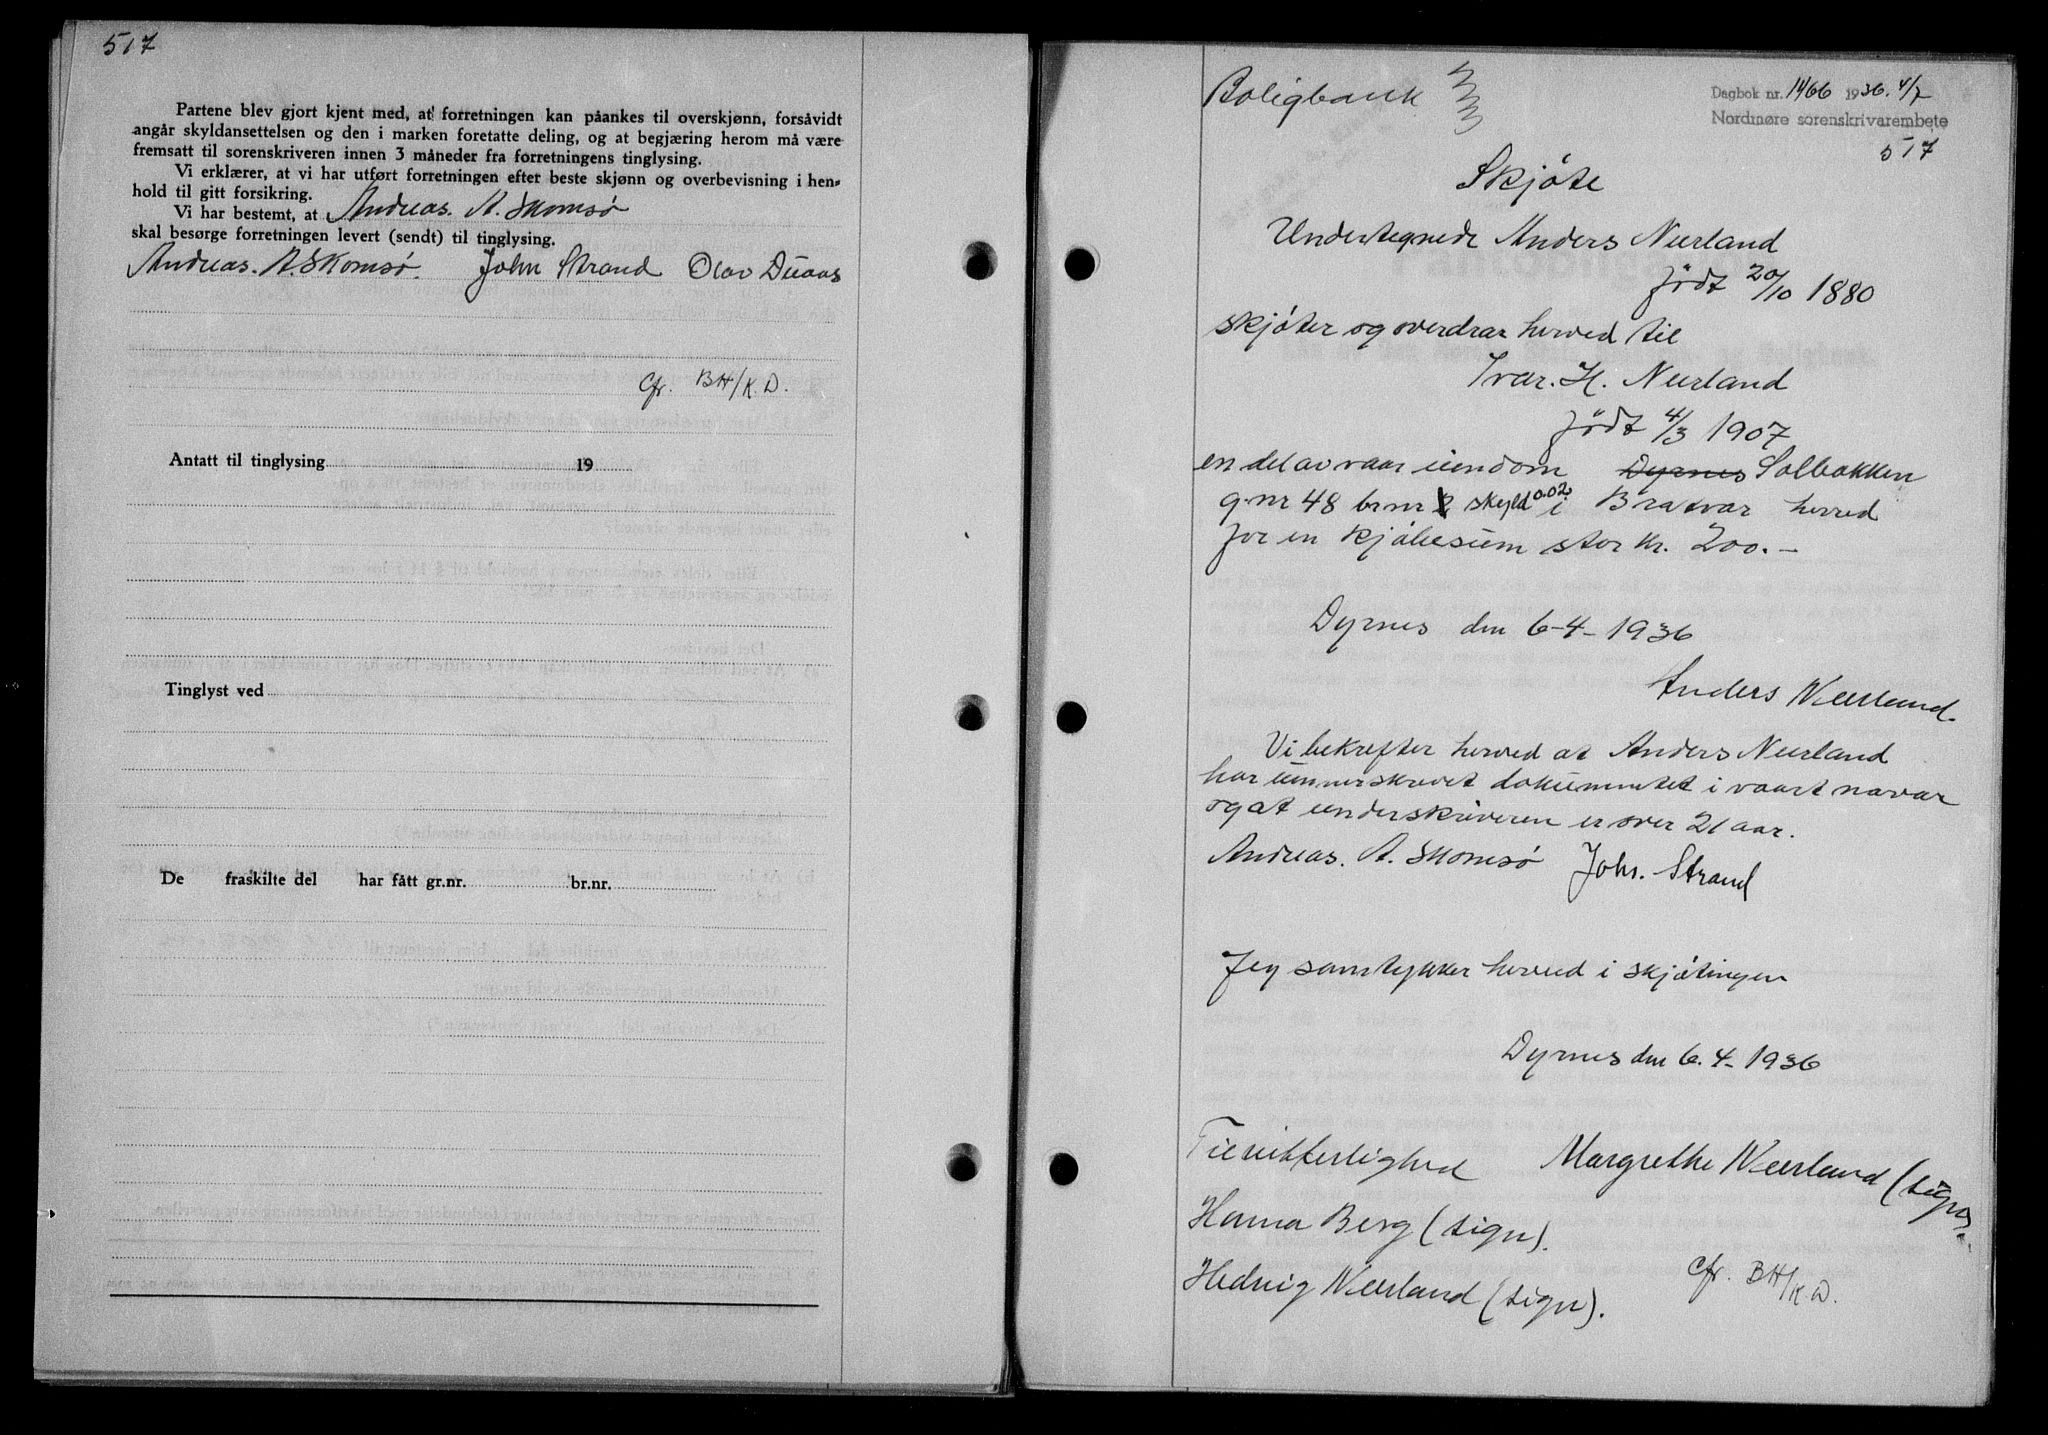 517
Partene blev gjort kjent med, at forretningen kan påankes til overskjønn, forsåvidt
angår skyldansettelsen og den i marken foretatte deling, og at begjæring herom må være
fremsatt til sorenskriveren innen 3 måneder fra forretningens tinglysing.
Vi erklærer, at vi har utført forretningen efter beste skjønn og overbevisning i hen-
hold til gitt forsikring.
Vi har bestemt, at Andreas. A. Skomsø
skal besørge forretningen levert (sendt) til tinglysing.
Andreas. A. Skomsø. John Strand Olav
Cfr. BH/K.D.
Antatt til tinglysing 19
Tinglyst ved
De fraskilte del har fått gr.nr. br.nr.
Boligbank
Dagbok nr. 1466 1936. 4/7
Nordmøre sorenskrivarembete
517
Skjøte
Undertegnede Anders Neerland
født 20/10 1880
skjøter og overdrar herved til
Ivar. H. Neerland
født 4/3 1907
en del av vaar eiendom Dyrnes Solbakken
g.nr 48 br.nr skyld 0.02 i Brattvær herred
for en kjøbesum stor kr. 200.-
Dyrnes den 6-4-1936
Anders Neerland.
Vi bekrefter herved at Anders Neerland
har unnerskrevet dokummtet i vaart navar
og at underskriveren er over 21 aar.
Andreas. A. Skomsø Joh. Strand
Jeg samtykker herved i skjøtingen
Dyrnes den 6.4-1936
Til vitterlighed Margrethe Neerland (sign).
Hanna Berg (sign).
Hedvig Neerland (sign).
Cfr. BH/K.D.